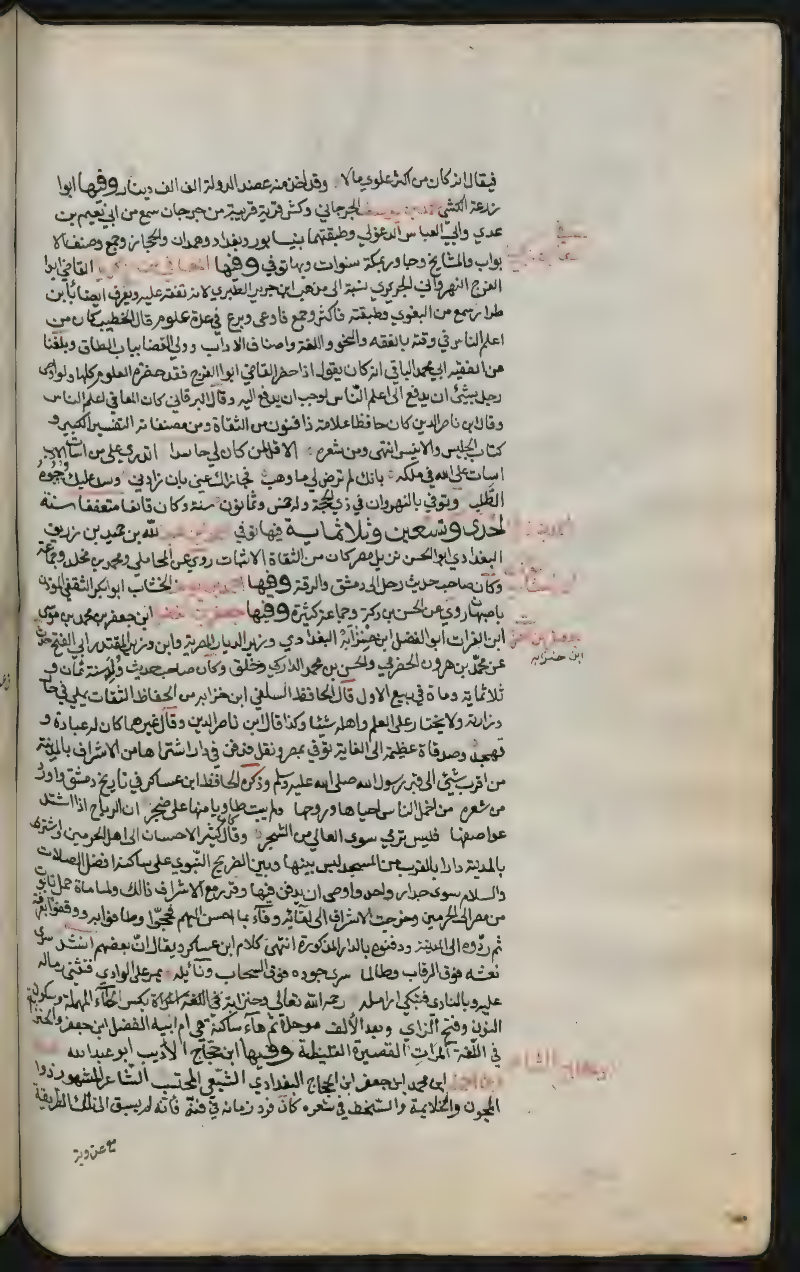 فيقال انه كان من اكثر علوي مالا وقد اخذ منه عضد الدولة الف الف دينار وفيها ابوا
زرعة الكشي محمد بن يوسف الجرجاني وكش قرية قريبة من جرجان سمع من ابي نعيم بن
عدي وابي العباس الدغولي وطبقتهما بنيسابور وبغداد وهمدان والحجاز وجمع وصنف الا
بواب والمشايخ وجاور بمكة سنوات وبها توفي وفيها المعافى بن زكريا القاضي ابوا
الفرج النهرواني الجريري نسبة الى مذهب ابن جرير الطبري لانه تفقه عليه ويعرف ايضا بابن
طرار سمع من البغوي وطبقته فاكثر وجمع فاوعى وبرع في عدة علوم قال الخطيب كان من
اعلم الناس في وقته بالفقه والنحو واللغة واصناف الاداب وولي القضا بباب الطاق وبلغنا
عن الفقيه ابي محمد الباقي انه كان يقول اذا حضر القاضي ابوا الفرج فقد حضرت العلوم كلها ولو اوصى
رجل بشئ ان يدفع الى اعلم الناس لوجب ان يدفع اليه وقال البرقاني كان المعافى اعلم الناس
وقال ابن ناصر الدين كان حافظا علامة ذا فنون من الثقاة ومن مصنفاته التفسير الكبير و
كتاب الجليس والانيس انتهى ومن شعره الا قل لمن كان لي حاسدا اتدري على من اسأت الادب
اسات على الله في ملكه بانك لم ترض لي ما وهب فجازاك عني بان زادني وسد عليك وجوه
الطلب وتوفي بالنهروان في ذي الحجة وله خمس وثمانون سنة وكان قانعا متعففا سنة
احدى وتسعين وثلاثماية فيها توفي احمد بن عبد الله بن حميد بن زريق
البغدادي ابو الحسن نزيل مصر كان من الثقاة الاثبات روى عن المحاملي ومحمد بن مخلد وجماعة
وكان صاحب حديث رحل الى دمشق والرقة وفيها احمد بن يوسف الخشاب ابو بكر الثقفي المؤذن
باصبهان روى عن الحسن بن دكة وجماعة كثيرة وفيها جعفر بن الفضل ابن جعفر بن محمد بن موسى
ابن الفرات ابو الفضل ابن حنزابة البغدادي وزير الديار المصرية وابن وزير المقتدر ابي الفتح حدث
عن محمد بن هرون الحضرمي والحسن بن محمد الداركي وخلق وكان صاحب حديث ولد سنة ثمان و
ثلاثماية ومات في ربيع الاول قال الحافظ السلفي ابن حنزابه من الحفاظ الثقات يملي في حال
وزارته ولا يختار على العلم واهله شيئا وكذا قال ابن ناصر الدين وقال غيرهما كان له عبادة و
تهجد وصدقاة عظيمة الى الغاية توفي بمصر ونقل فدفن في دار اشتراها من الاشراف بالمدينة
من اقرب شئ الى قبر رسول الله صلى الله عليه وسلم وذكره الحافظ ابن عساكر في تاريخ دمشق واورد
من شعره من اخمل الناس احياها وروحها ولم يبت طاويا منها على ضجر ان الرياح اذا اشتد
عواصفها فليس ترمي سوى العالي من الشجر وقال كان كثير الاحسان الى اهل الحرمين واشترى
بالمدينة دارا بالقرب من المسجد ليس بينها وبين الضريح النبوي على ساكنه افضل الصلات
والسلام سوى جدار واحد واوصى ان يدفن فيها وقرر مع الاشراف ذالك ولما مات حمل تابوته
من مصر الى الحرمين وخرجت الاشراف الى لقائه وفاء بما احسن اليهم فحجوا وطافوا به ووقفوا بعرفة
ثم ردوه الى المدينة ودفنوه بالدار المذكورة انتهى كلام ابن عساكر ويقال ان بعضهم انشد سرى
نعشه فوق الرقاب وطالما سرى جوده فوق السحاب ونائله يمر على الوادي فتثني رماله
عليه وبالنادي فتبكي ارامله رحمه الله تعالى وحنزابة في اللغة المراة بكسر الحاء المهملة وسكون
النون وفتح الزاي وبعد الالف موحدة ثم هاء ساكنة هي ام ابيه الفضل ابن جعفر والحنزابة
في اللغة المرات القصيرة الغليظة وفيها ابن حجاج الاديب ابو عبد الله
ابن احمد ابن محمد ابن جعفر ابن الحجاج البغدادي الشيعي المحتسب الشاعر المشهور ذوا
المجون والخلاعة والسخف في شعره كان فرد زمانه في فنه فانه لم يسبق الى تلك الطريقة
مع عذوبة
ابن حنزابه